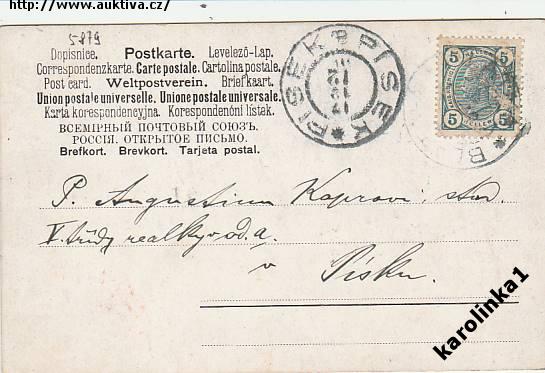 http://www.auktiva.cz/
5879
Dopisnice. Postkarte. Levelező-Lap.
Correspondenzkarte. Carte postale. Cartolina postale.
Post card. Weltpostverein. Briefkaart.
Union postale universelle. Unione postale universale.
Karta korespondencyjna. Korespondenóni listek.
ВСЕМІРНЫЙ ПОЧТОВЫЙ СОЮЗЪ.
РОССІЯ. ОТКРЫТОЕ ПИСЬМО.
Brefkort. Brevkort. Tarjeta postal.
PISEK PISEK
5 5
5 5
P. Augustinu Kaprovi, stud.
V. třídy realky v od. a.
v
Písku.
karolinka1